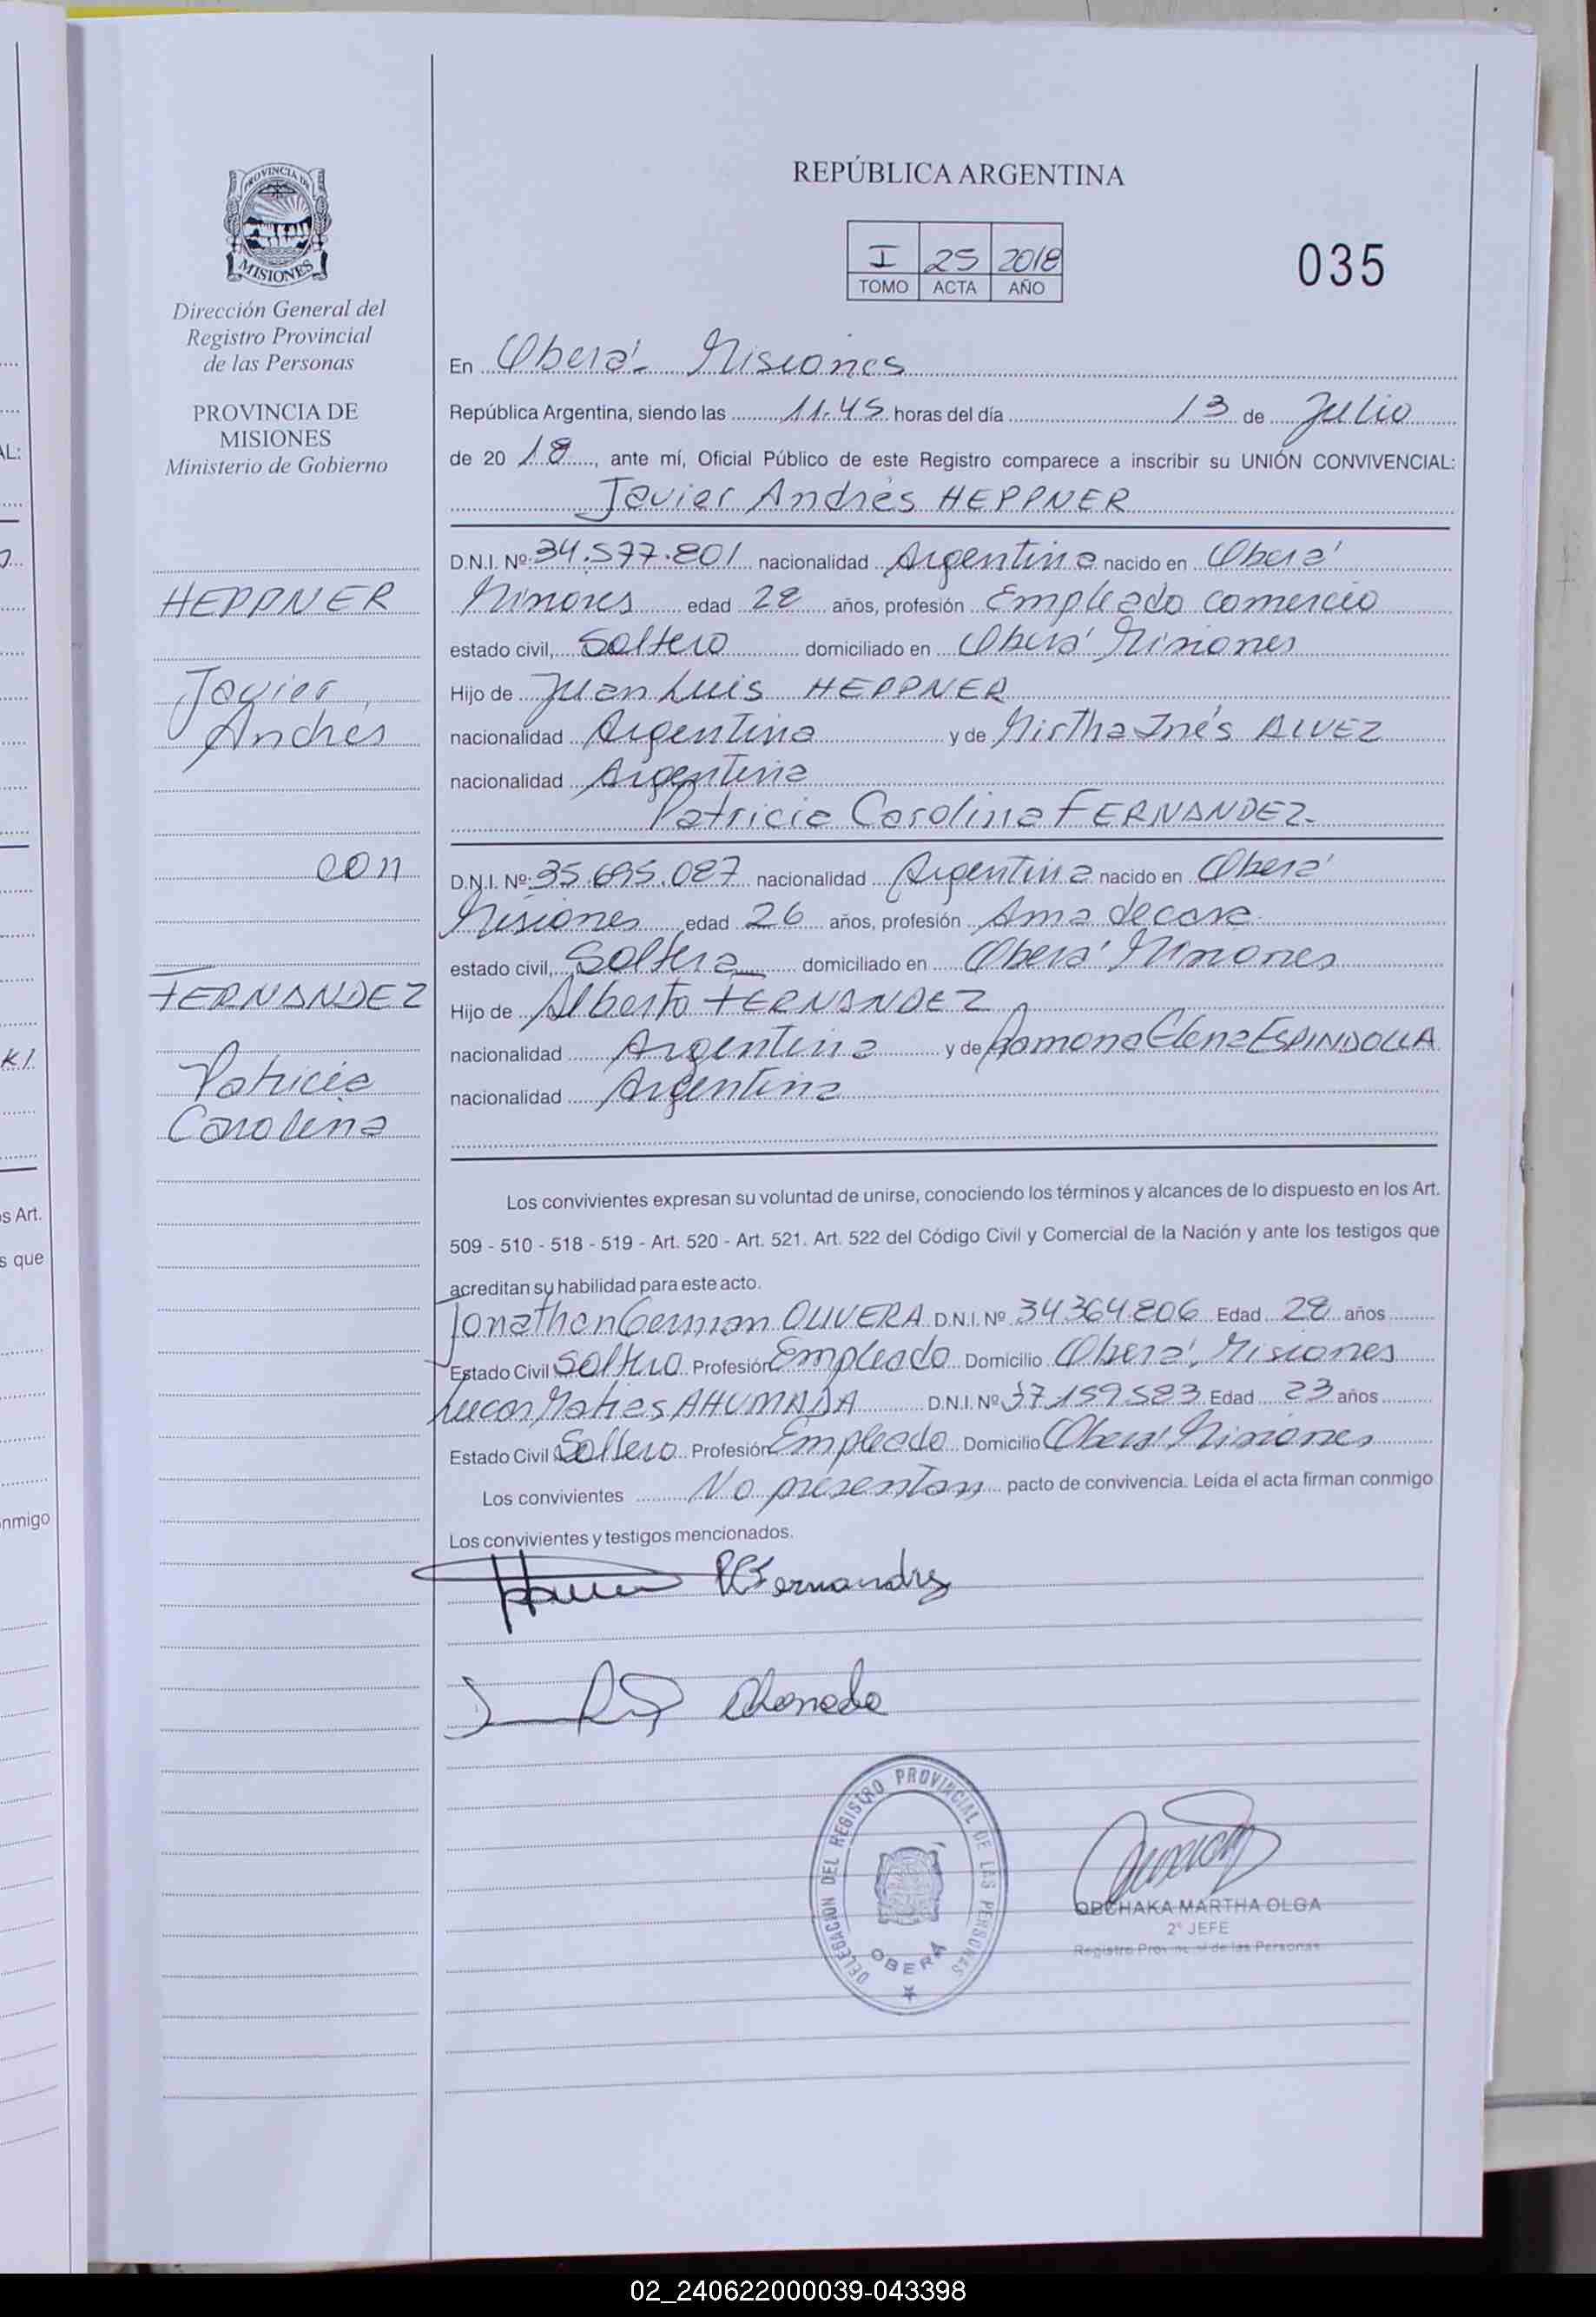 PROVINCIA DE
MISIONES
Dirección General del
Registro Provincial
de las Personas
PROVINCIA DE
MISIONES
Ministerio de Gobierno
HEPPNER
Javier
Andrés
con
FERNANDEZ
Patricia
Carolina
REPÚBLICA ARGENTINA
I 25 2018
TOMO ACTA AÑO
035
En Oberá - Misiones
República Argentina, siendo las 11.45 horas del día 13 de Julio
de 20 18, ante mí, Oficial Público de este Registro comparece a inscribir su UNIÓN CONVIVENCIAL:
Javier Andrés HEPPNER
D.N.I. Nº 34.577.801 nacionalidad Argentina nacido en Oberá
Misiones edad 28 años, profesión Empleado comercio
estado civil, Soltero domiciliado en Oberá Misiones
Hijo de Juan Luis HEPPNER
nacionalidad Argentina y de Mirtha Inés ALVEZ
nacionalidad Argentina
Patricia Carolina FERNANDEZ.
D.N.I. Nº 35.695.087 nacionalidad Argentina nacido en Oberá
Misiones edad 26 años, profesión Ama de casa
estado civil, Soltera domiciliado en Oberá Misiones
Hijo de Alberto FERNANDEZ
nacionalidad Argentina y de Ramona Elena ESPINDOLLA
nacionalidad Argentina
Los convivientes expresan su voluntad de unirse, conociendo los términos y alcances de lo dispuesto en los Art.
509 - 510 - 518 - 519 - Art. 520 - Art. 521. Art. 522 del Código Civil y Comercial de la Nación y ante los testigos que
acreditan su habilidad para este acto.
Jonathan German OLIVERA D.N.I. Nº 34.364.806 Edad 28 años
Estado Civil Soltero Profesión Empleado Domicilio Oberá, Misiones
Lucas Matias AHUMADA D.N.I. Nº 37.159.583 Edad 23 años
Estado Civil Soltero Profesión Empleado Domicilio Oberá Misiones
Los convivientes No presentan pacto de convivencia. Leída el acta firman conmigo
Los convivientes y testigos mencionados.
P.C Fernandez
DELEGACION DEL REGISTRO PROVINCIAL DE LAS PERSONAS
OBERÁ
OBCHAKA MARTHA OLGA
2° JEFE
Registro Provincial de las Personas
AL:
s Art.
s que
nmigo
02_240622000039-043398